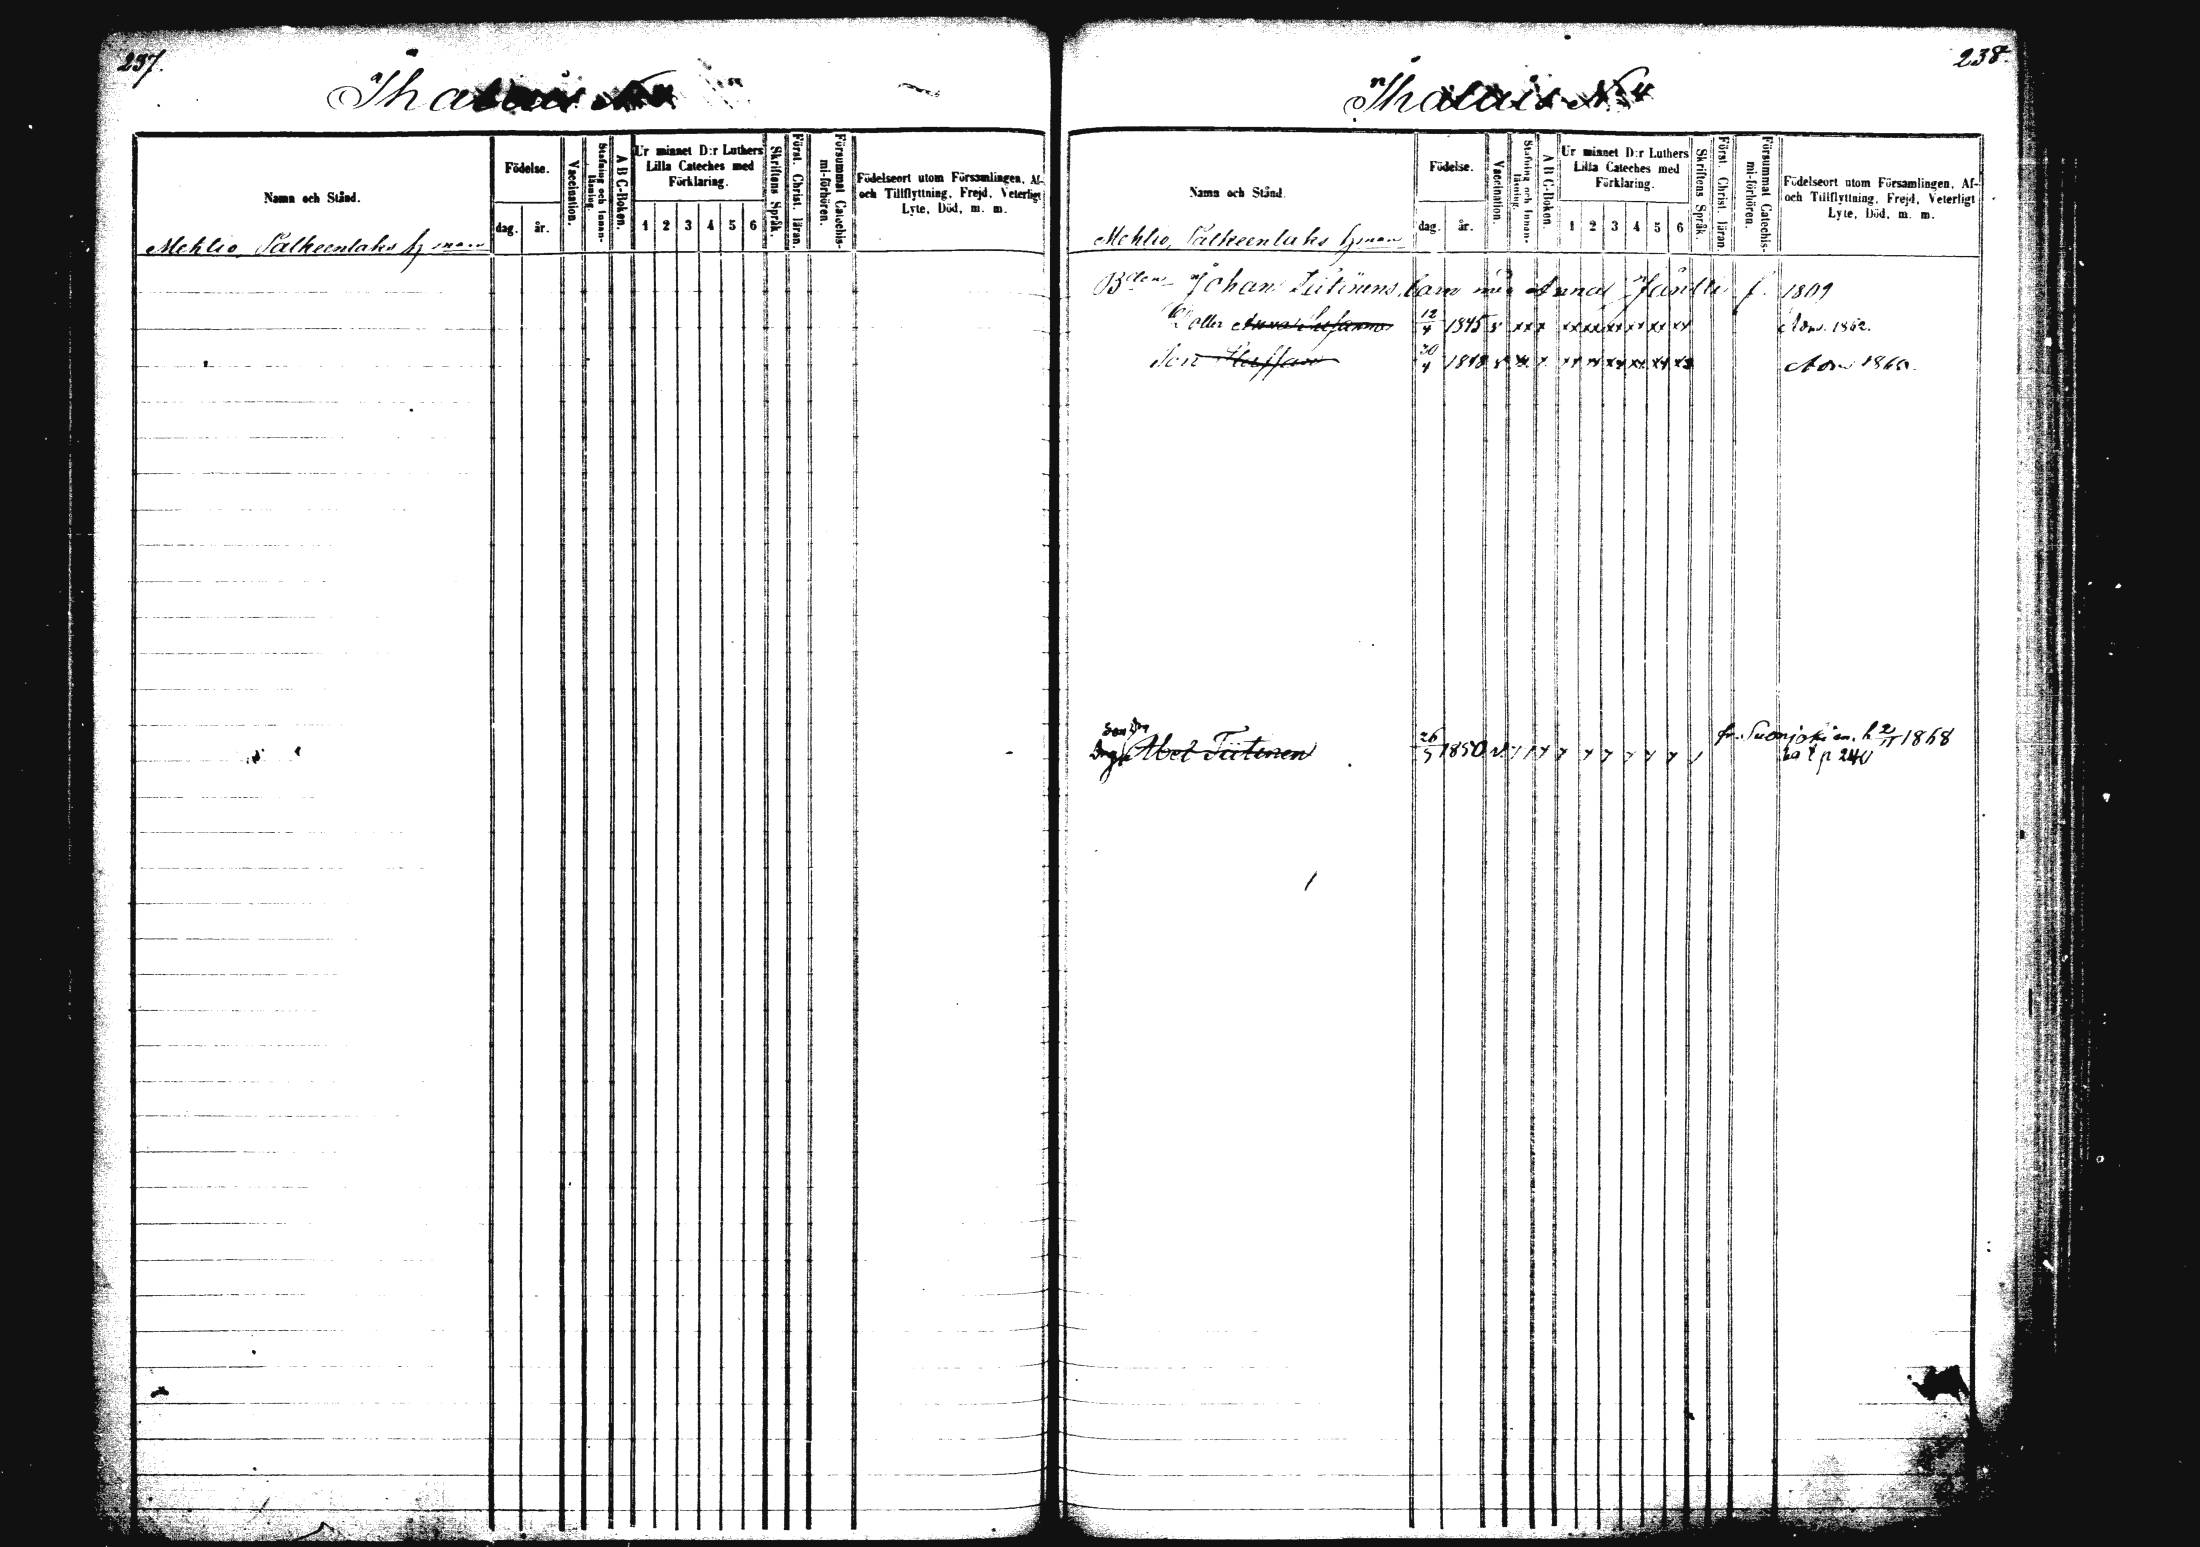 237.
Ihalais N:o 4
Namn och Stånd.
Födelse.
dag.
år.
Vaccination.
Stafning och Innanläsning.
A B C-Boken.
Ur minnet D:r Luthers
Lilla Cateches med
Förklaring.
1 2 3 4 5 6
Skriftens Språk.
Först. Christ. läran.
Försummat Catechismi-förhören.
Födelseort utom Församlingen, Af-
och Tillflyttning, Frejd, Veterligt
Lyte, Död, m. m.
Mehlio, Salkeenlaks
238.
Ihalais N:o 4
Namn och Stånd.
Födelse.
dag.
år.
Vaccination.
Stafning och Innanläsning.
A B C-Boken.
Ur minnet D:r Luthers
Lilla Cateches med
Förklaring.
1 2 3 4 5 6
Skriftens Språk.
Först. Christ. läran.
Försummat Catechismi-förhören.
Födelseort utom Församlingen, Af-
och Tillflyttning, Frejd, Veterligt
Lyte, Död, m. m.
Mehlio, Salkeenlaks
Johan Tiitinens barn med Anna f. 1809
Dotter Anna Susanna 12/4 1845 Adm. 1862.
Son Staffan 30/4 1848 Adm 1865.
Son
Abel Tiitinen 26/5 1850 fr. Suonjoki 2/11 1868
p 240